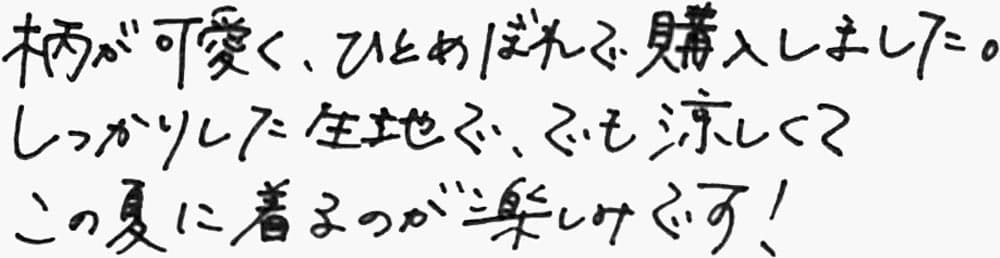 柄が可愛く、ひとめぼれで購入しました。
しっかりした生地で、でも涼しくて
この夏に着るのが楽しみです！